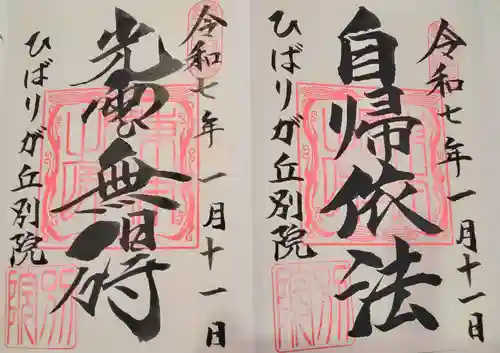 令和七年一月十一日
自帰依法
ひばりが丘別院
令和七年一月十一日
光雲無碍
ひばりが丘別院
別院
別院